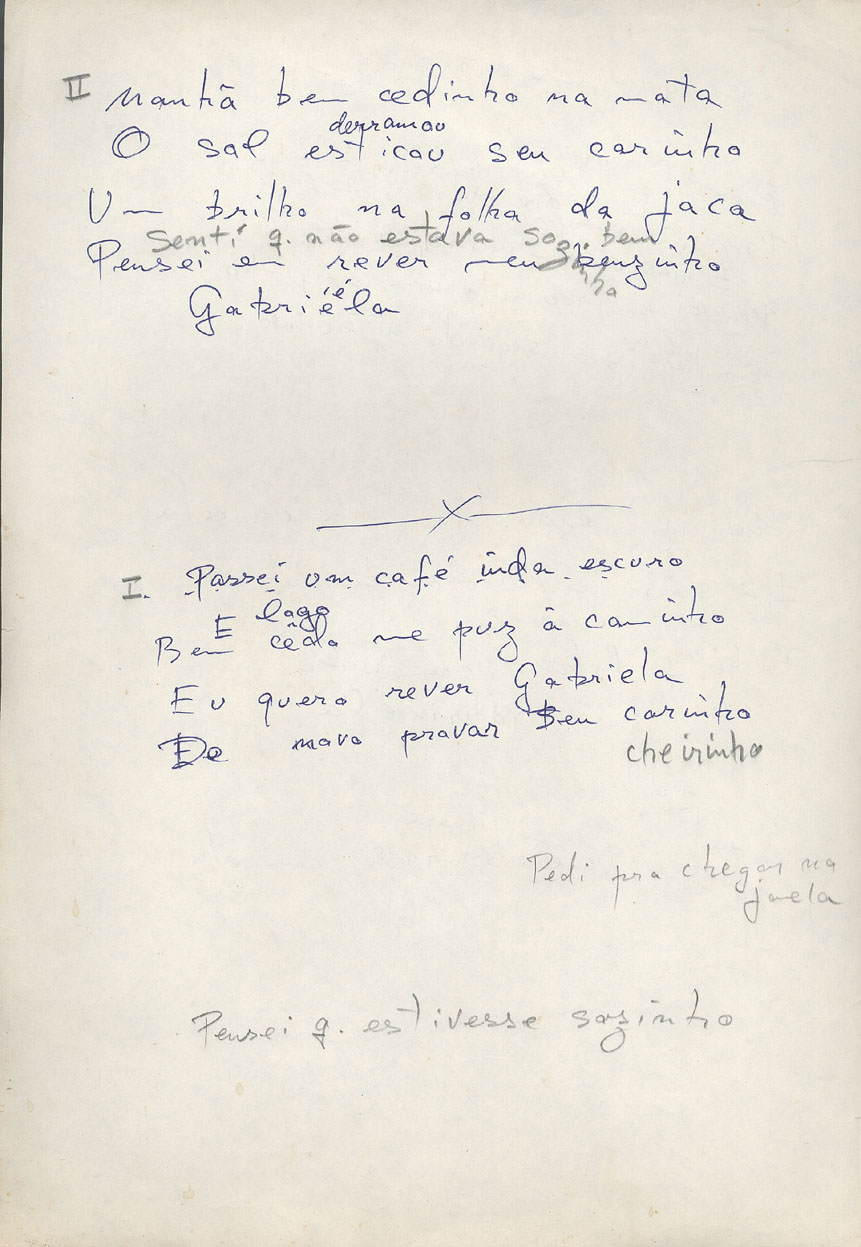 II Manhã bem cedinho na mata
derramou
O sol esticou seu carinho
Um brilho na folha da jaca
Senti q. não estava sozinho bem
Pensei em rever meu benzinho
Gabriééla
X
I. Passei um café inda escuro
E logo
Bem cedo me puz à caminho
Eu quero rever Gabriela
De novo provar seu carinho
cheirinho
Pedi pra chegar na
janela
Pensei q. estivesse sozinho